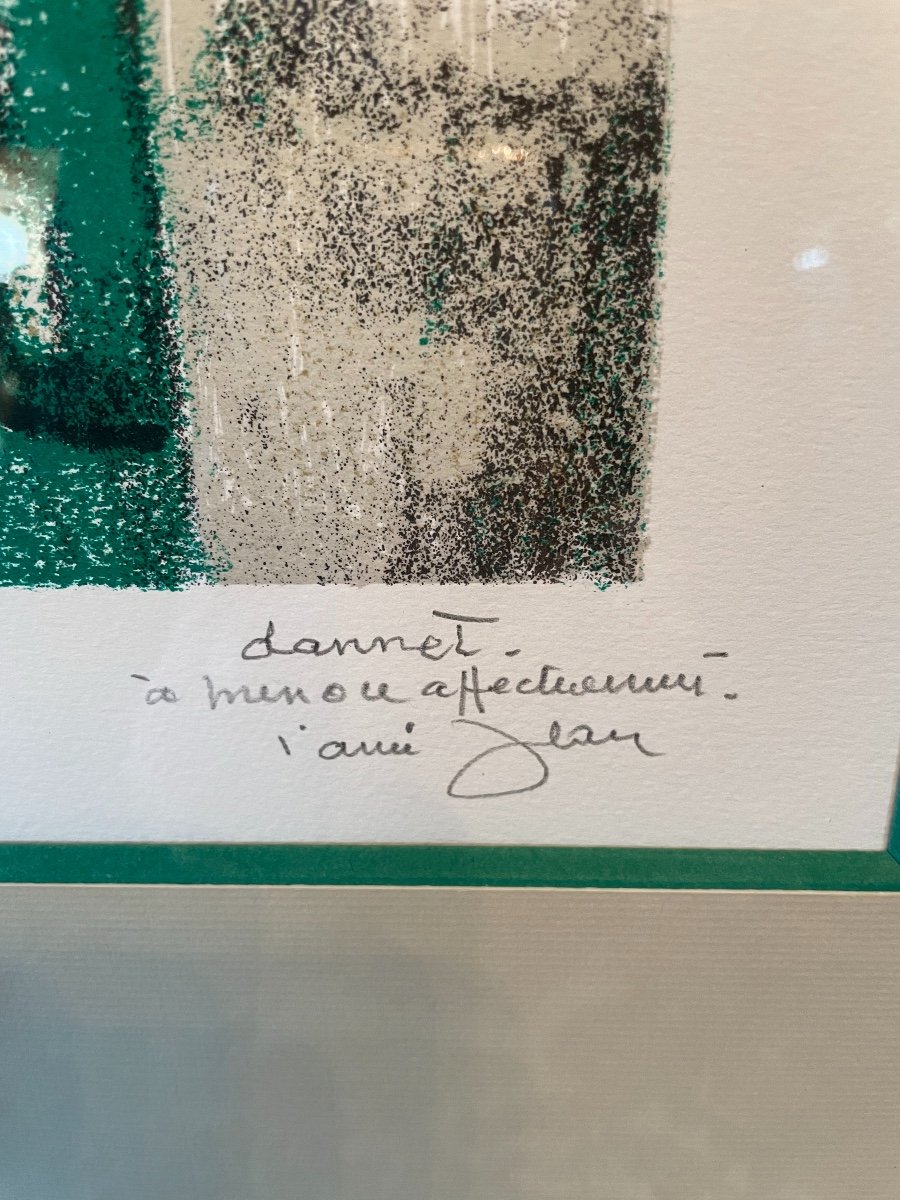 dannet.
à menou affectuemnt.
l'ami Jean